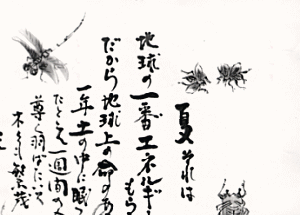 夏それは
地球の一番エネルギー
もら
だから地球上の命のあ
一年土の中に眠っ
たとえ一週間の
尊く羽ばたいて
木々も繁茂